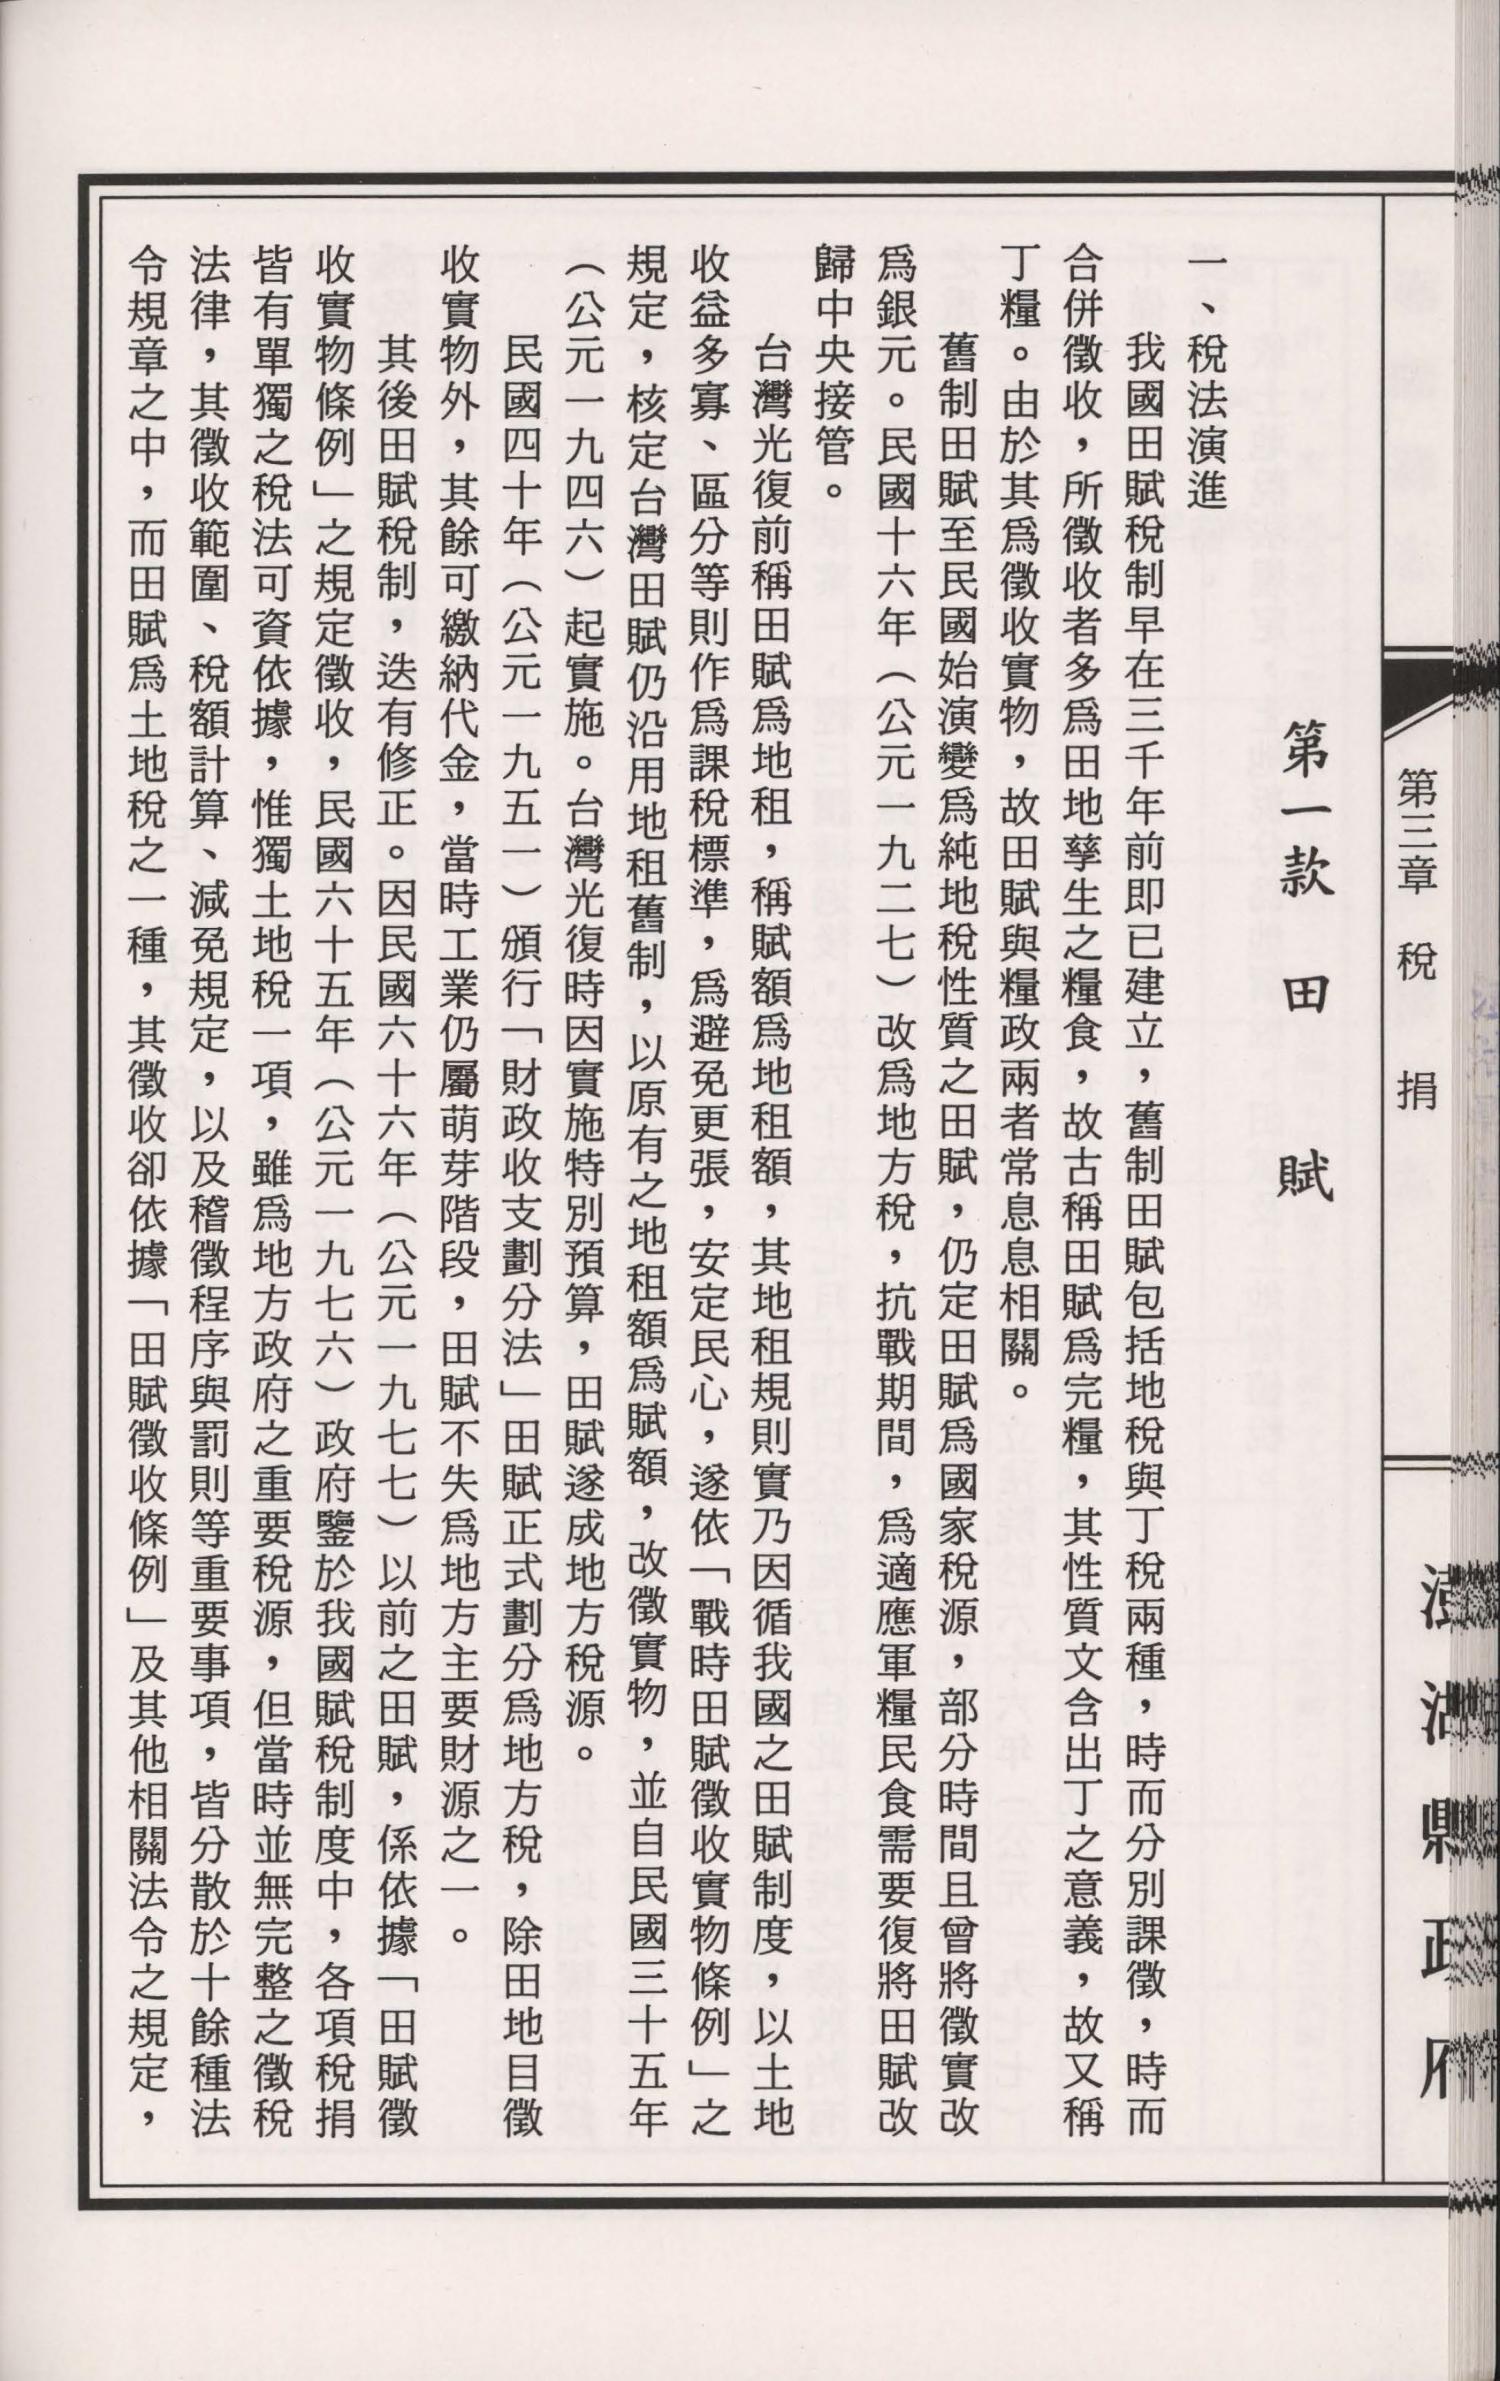 第三章　稅　捐
澎湖縣政府
第一款　田　賦
一、稅法演進
我國田賦稅制早在三千年前即已建立，舊制田賦包括地稅與丁稅兩種，時而分別課徵，時而
合併徵收，所徵收者多爲田地孳生之糧食，故古稱田賦爲完糧，其性質文含出丁之意義，故又稱
丁糧。由於其爲徵收實物，故田賦與糧政兩者常息息相關。
舊制田賦至民國始演變爲純地稅性質之田賦，仍定田賦爲國家稅源，部分時間且曾將徵實改
爲銀元。民國十六年（公元一九二七）改爲地方稅，抗戰期間，爲適應軍糧民食需要復將田賦改
歸中央接管。
台灣光復前稱田賦爲地租，稱賦額爲地租額，其地租規則實乃因循我國之田賦制度，以土地
收益多寡、區分等則作爲課稅標準，爲避免更張，安定民心，遂依「戰時田賦徵收實物條例」之
規定，核定台灣田賦仍沿用地租舊制，以原有之地租額爲賦額，改徵實物，並自民國三十五年
（公元一九四六）起實施。台灣光復時因實施特別預算，田賦遂成地方稅源。
民國四十年（公元一九五一）頒行「財政收支劃分法」田賦正式劃分爲地方稅，除田地目徵
收實物外，其餘可繳納代金，當時工業仍屬萌芽階段，田賦不失爲地方主要財源之一。
其後田賦稅制，迭有修正。因民國六十六年（公元一九七七）以前之田賦，係依據「田賦徵
收實物條例」之規定徵收，民國六十五年（公元一九七六）政府鑒於我國賦稅制度中，各項稅捐
皆有單獨之稅法可資依據，惟獨土地稅一項，雖爲地方政府之重要稅源，但當時並無完整之徵稅
法律，其徵收範圍、稅額計算、減免規定，以及稽徵程序與罰則等重要事項，皆分散於十餘種法
令規章之中，而田賦爲土地稅之一種，其徵收卻依據「田賦徵收條例」及其他相關法令之規定，